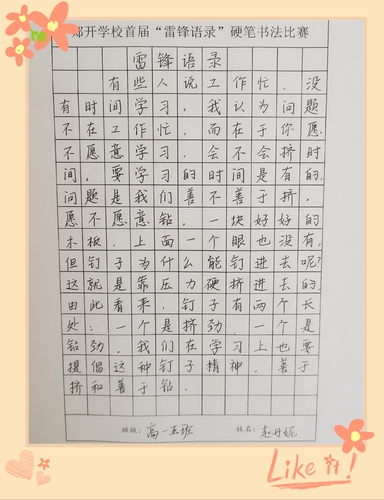 郑开学校首届“雷锋语录”硬笔书法比赛
雷锋语录
有些人说工作忙，没
有时间学习，我认为问题
不在工作忙，而在于你愿
不愿意学习，会不会挤时
间，要学习的时间是有的，
问题是我们善不善于挤，
愿不愿意钻，一块好好的
木板，上面一个眼也没有，
但钉子为什么能钉进去呢？
这就是靠压力硬挤进去的，
由此看来，钉子有两个长
处：一个是挤劲，一个是
钻劲，我们在学习上也要
提倡这种钉子精神，善于
挤和善于钻．
班级：高一五班 姓名：赵丹妮
Like it!